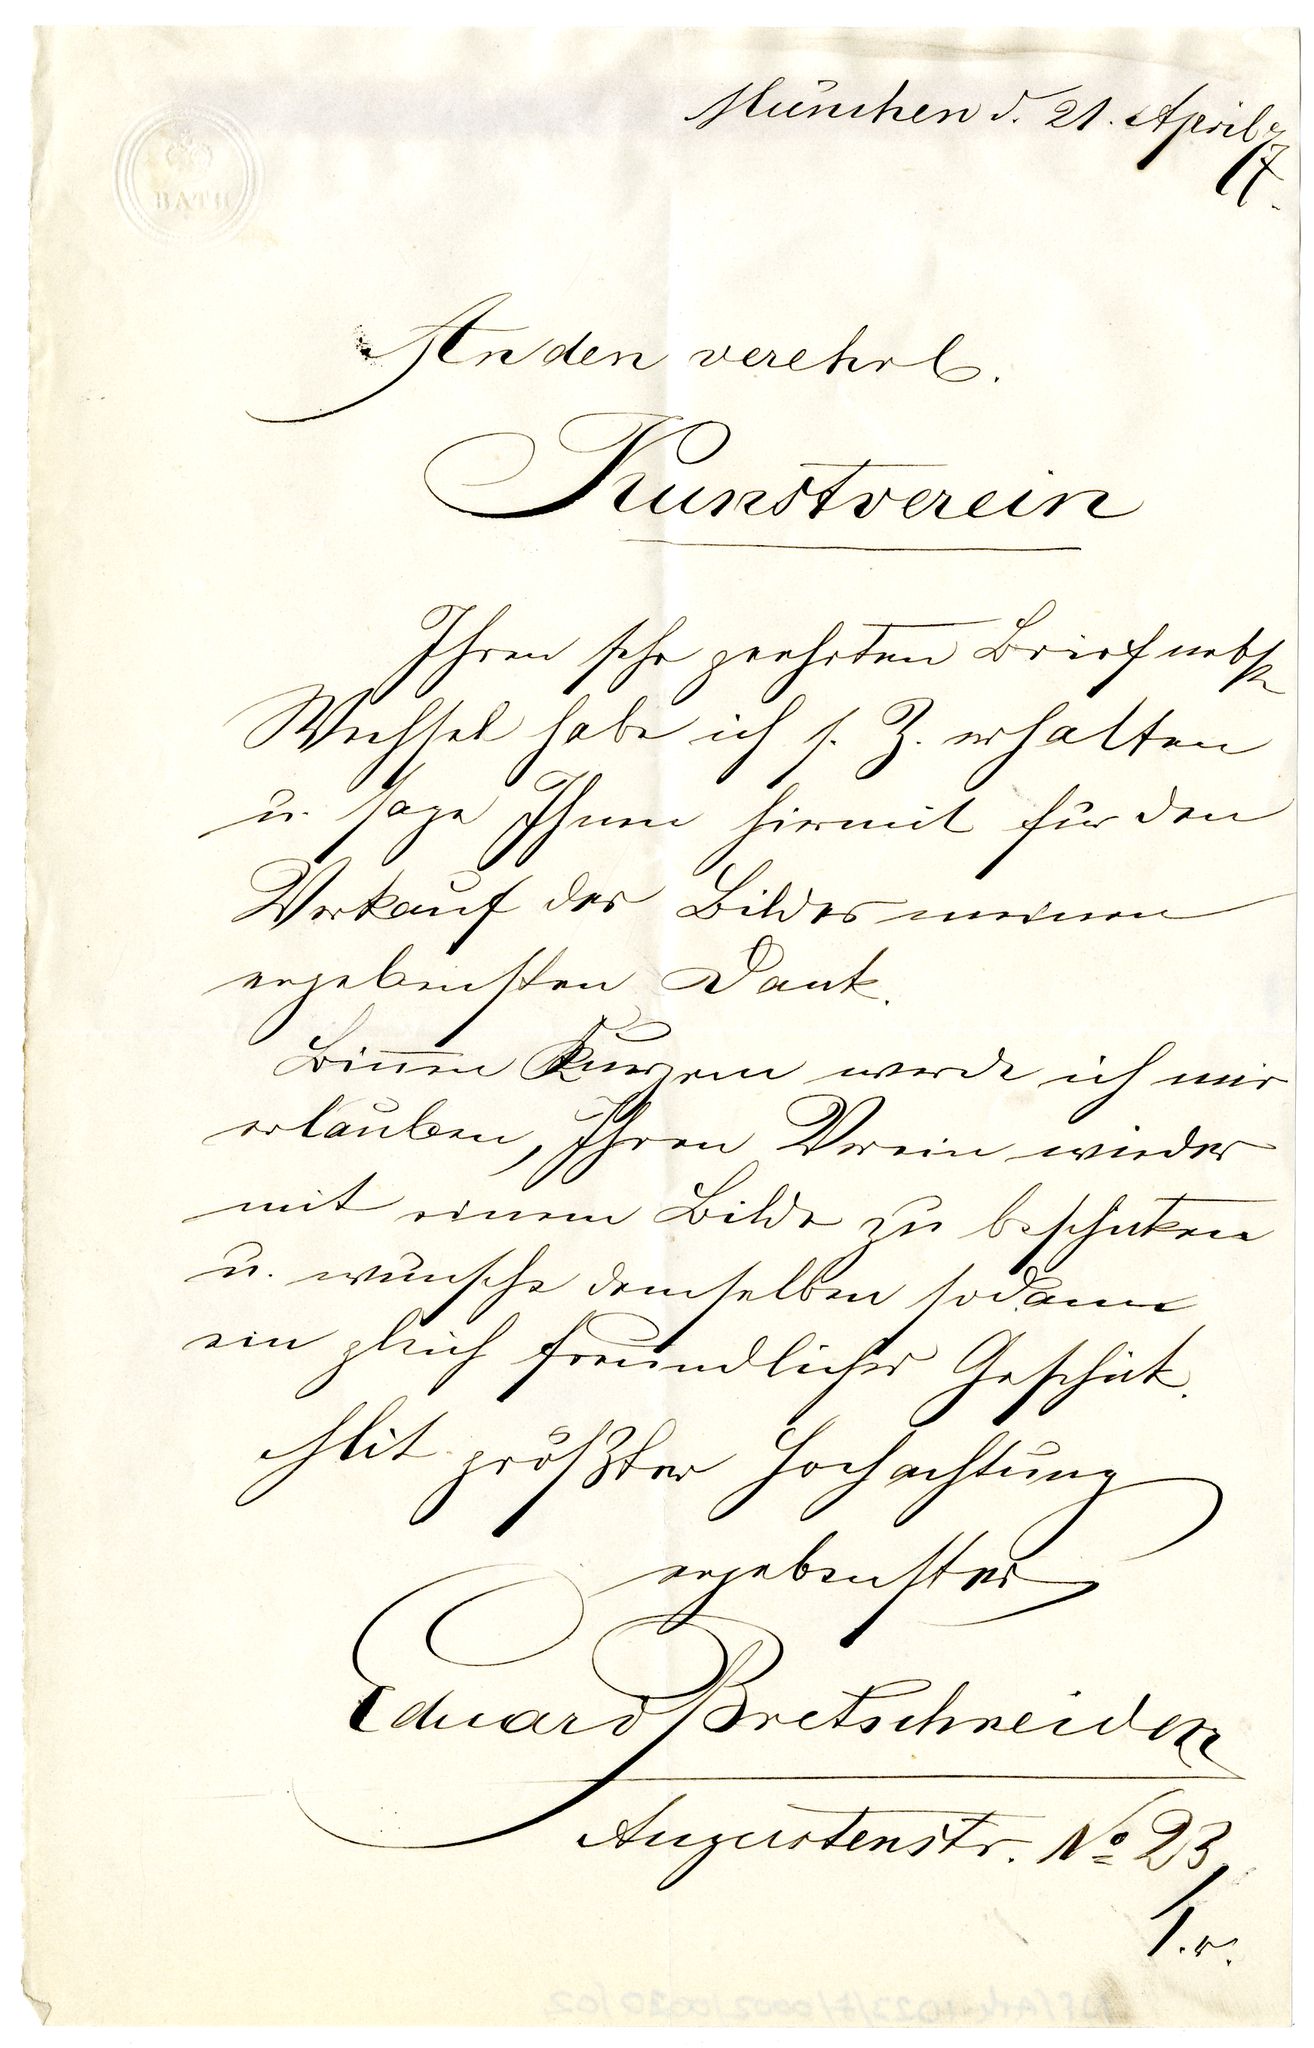 BATH
München d. 21. April 77.
An den verehrl.
Kunstverein
Ihren sehr geehrten Brief nebst
Wechsel habe ich s. Z. erhalten
u. sage Ihnen hiermit für den
Verkauf des Bildes meinen
ergebensten Dank.
Binnen Kurzem werde ich mir
erlauben, Ihren Verein wieder
mit einem Bilde zu beschiken
u. wünsche demselben sodann
ein gleich freundliches Geschik.
Mit größter Hochachtung
ergebenster
Eduard Bretschneider
Augustenstr. No 23
1. r.